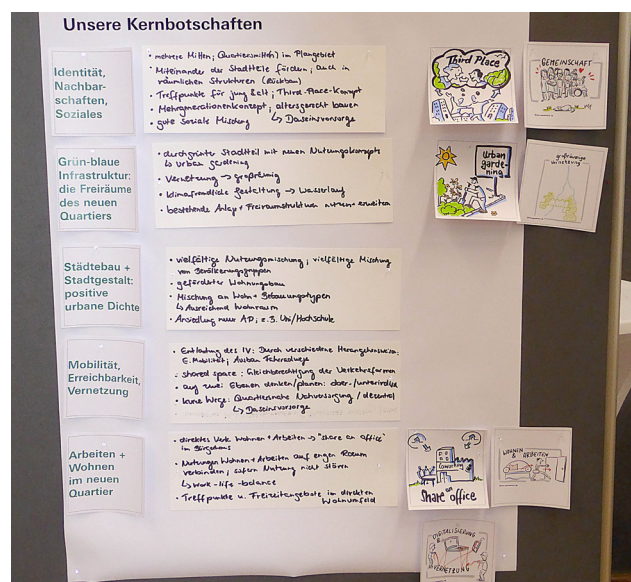 Unsere Kernbotschaften
Identität,
Nachbar-
schaften,
Soziales
• mehrere Mitten; Quartiersmitte(n) im Plangebiet
• Miteinander der Stadtteile fördern; auch in
räumlichen Strukturen (Rückbau)
• Treffpunkte für jung & alt; Third-Place-Konzept
• Mehrgenerationenkonzept; altersgerecht bauen
• gute soziale Mischung ↳ Daseinsvorsorge
Third Place
GEMEINSCHAFT
Grün-blaue
Infrastruktur:
die Freiräume
des neuen
Quartiers
• durchgrünter Stadtteil mit neuen Nutzungskonzepten
↳ Urban gardening
• Vernetzung → großräumig
• klimafreundliche Gestaltung → Wasserlauf
• bestehende Anlag. + Freiraumstrukturen nutzen + erweitern
Urban
garde-
ning
großräumige
Vernetzung
Städtebau +
Stadtgestalt:
positive
urbane Dichte
• vielfältige Nutzungsmischung; vielfältige Mischung
von Bevölkerungsgruppen
• geförderter Wohnungsbau
• Mischung an Wohn + Bebauungstypen
↳ Ausreichend Wohnraum
• Ansiedlung neuer AP; z.B. Uni/Hochschule
Mobilität,
Erreichbarkeit,
Vernetzung
• Entlastung des IV: Durch verschiedene Herangehensweisen:
E.Mobilität; Ausbau Fahrradwege
• shared space: Gleichberechtigung der Verkehrsformen
• auf zwei Ebenen denken/planen: ober-/unterirdisch
• kurze Wege: Quartiersnahe Nahversorgung / dezentral
↳ Daseinsvorsorge
Arbeiten +
Wohnen
im neuen
Quartier
• direktes Verk. Wohnen + Arbeiten → "share an office"
im Bürohaus
• Nutzungen Wohnen + Arbeiten auf engem Raum
verbinden; sofern Nutzung nicht stören
↳ work-life-balance
• Treffpunkte u. Freizeitangebote im direkten
Wohnumfeld
Coworking
Share an office
WOHNEN
& ARBEITEN
DIGITALISIERUNG
&
VERNETZUNG